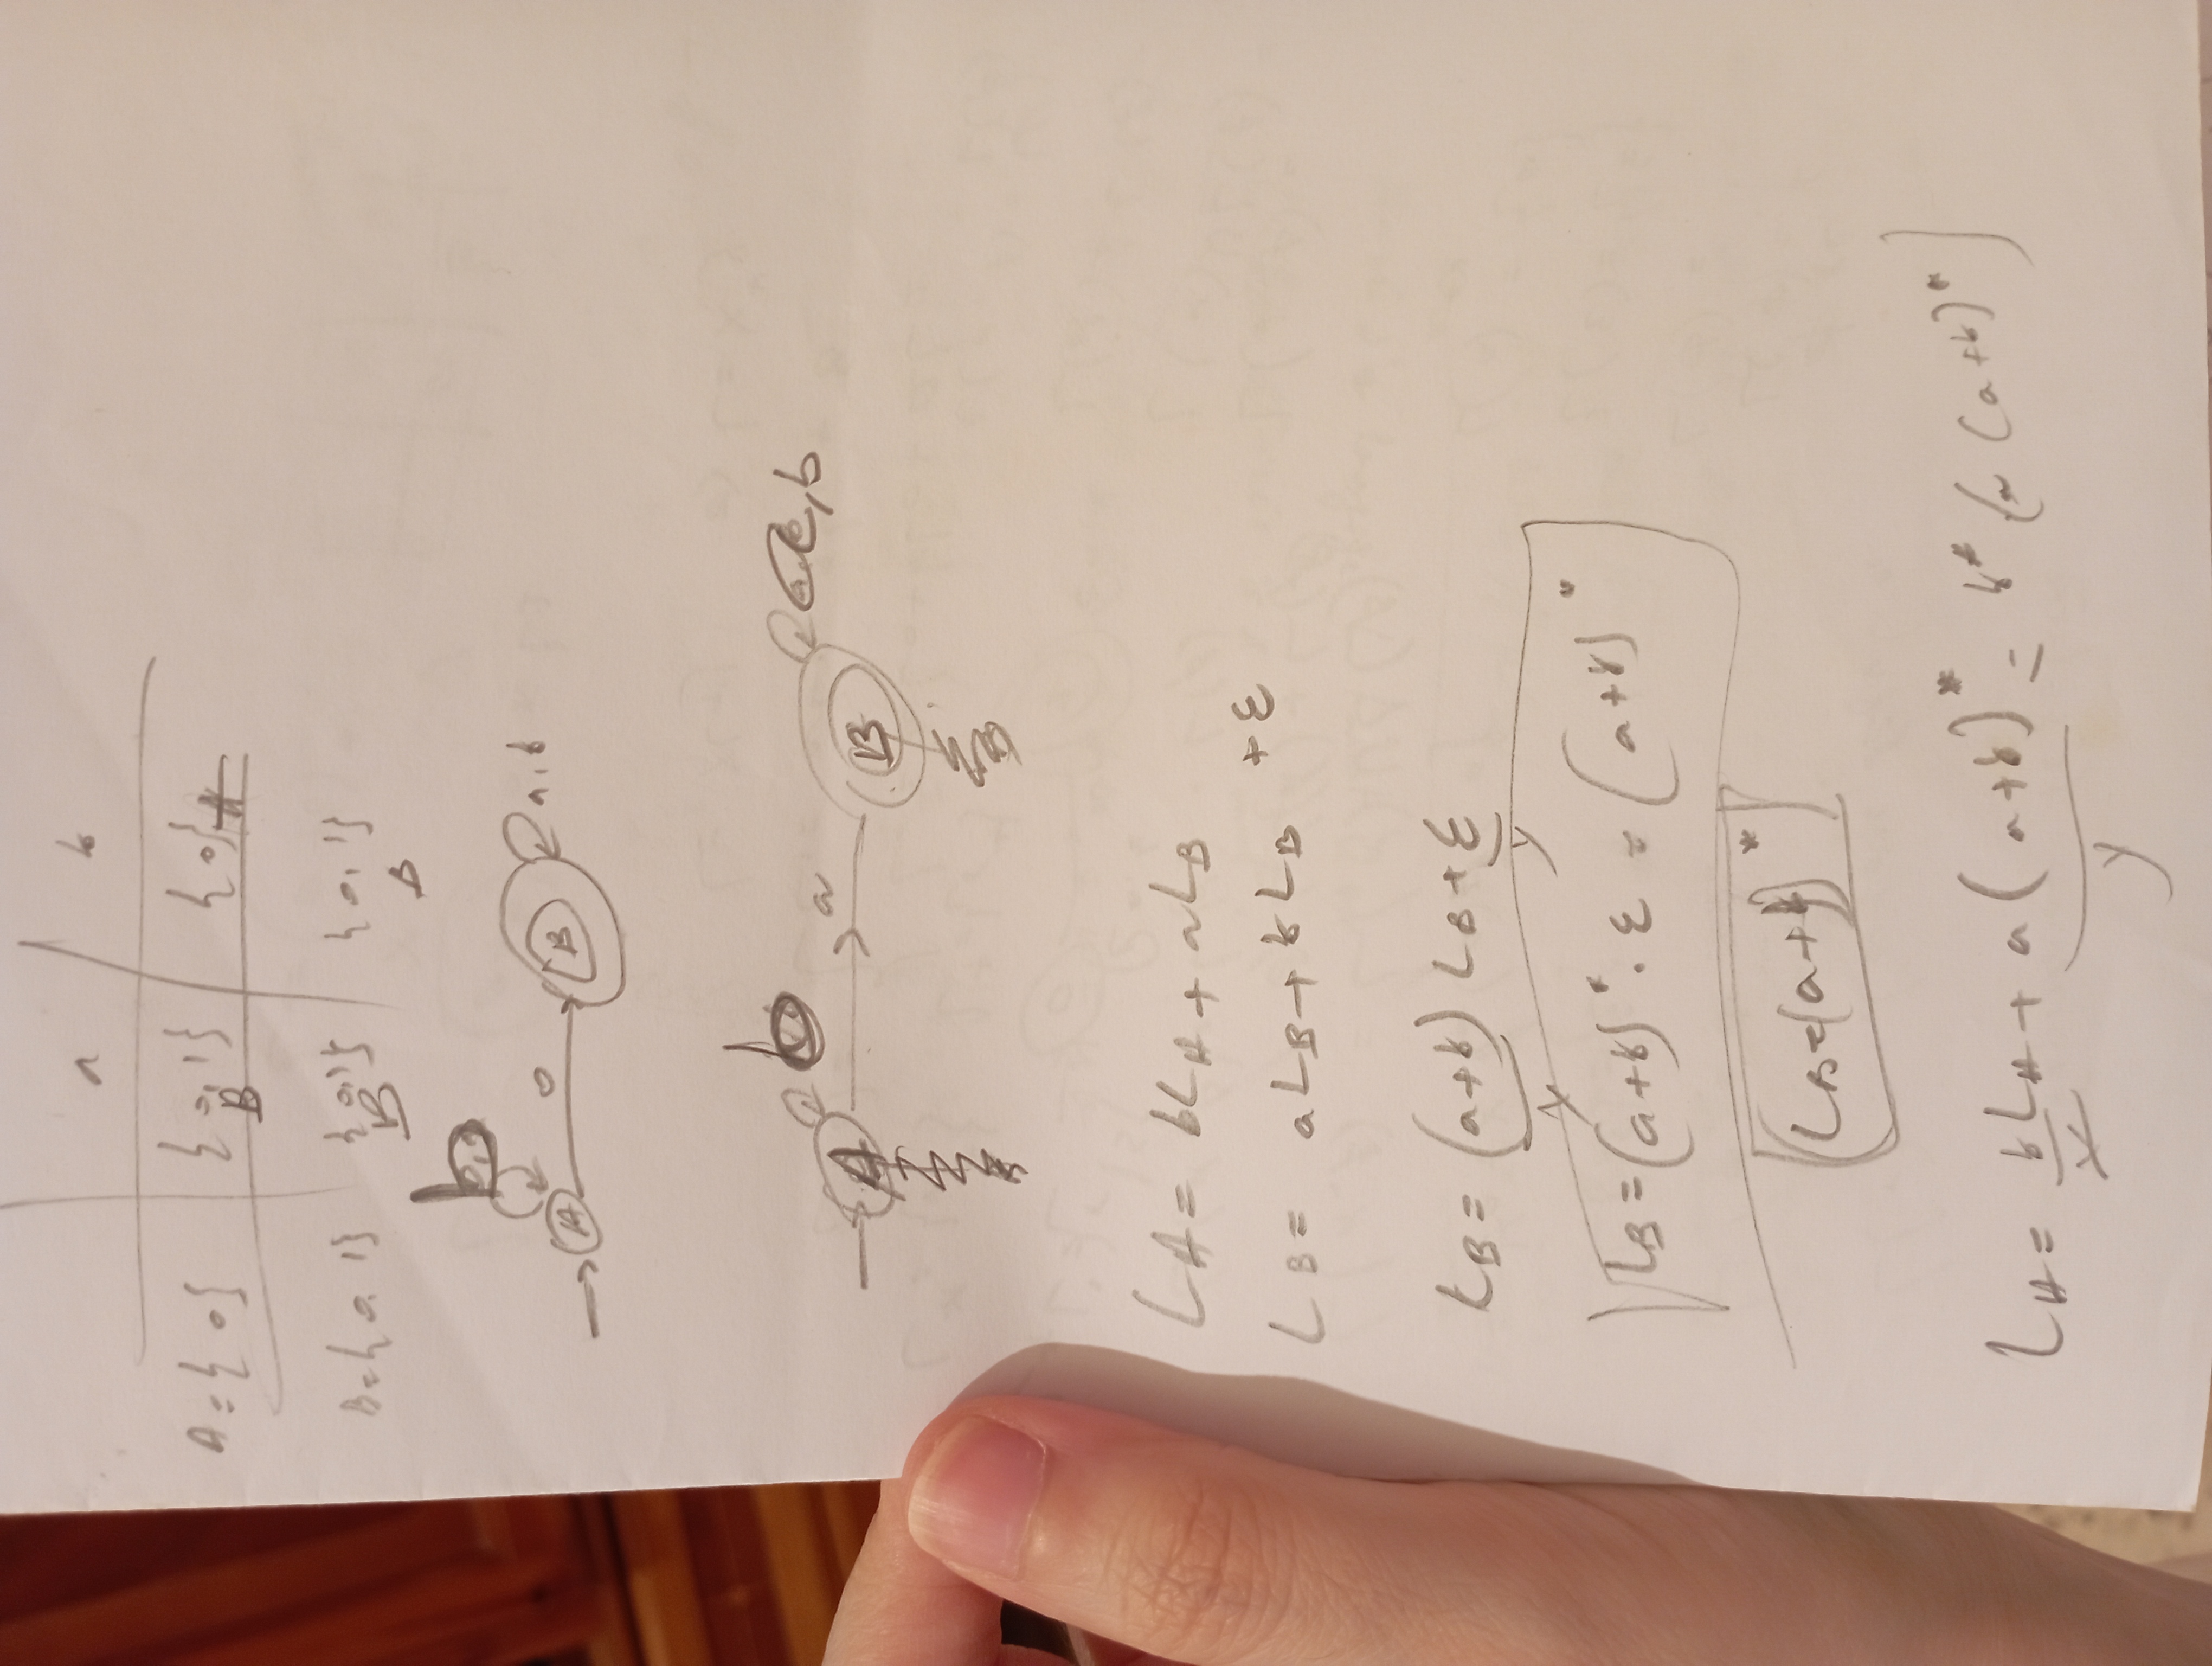 a b
A = { 0 } { 0, 1 } { 0 }
B
B = { 0, 1 } { 0, 1 } { 0, 1 }
B B
b
A 0 B a, b
b
A a B , b
LA = bLA + aLB
LB = aLB + bLB + ε
LB = (a+b) LB + ε
X y
LB = (a+b)* . ε = (a+b)*
LB = (a+b)*
LA = bLA + a(a+b)* = b* (a (a+b)*)
X y